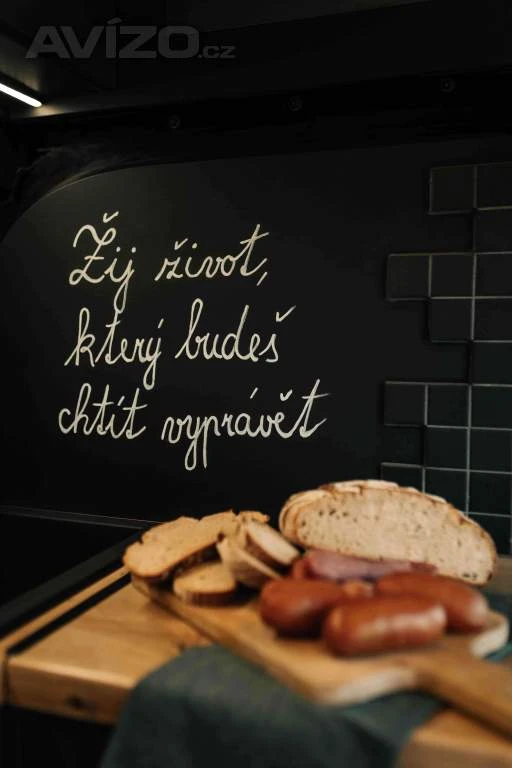 AVÍZO.cz
Žij život,
který budeš
chtít vyprávět